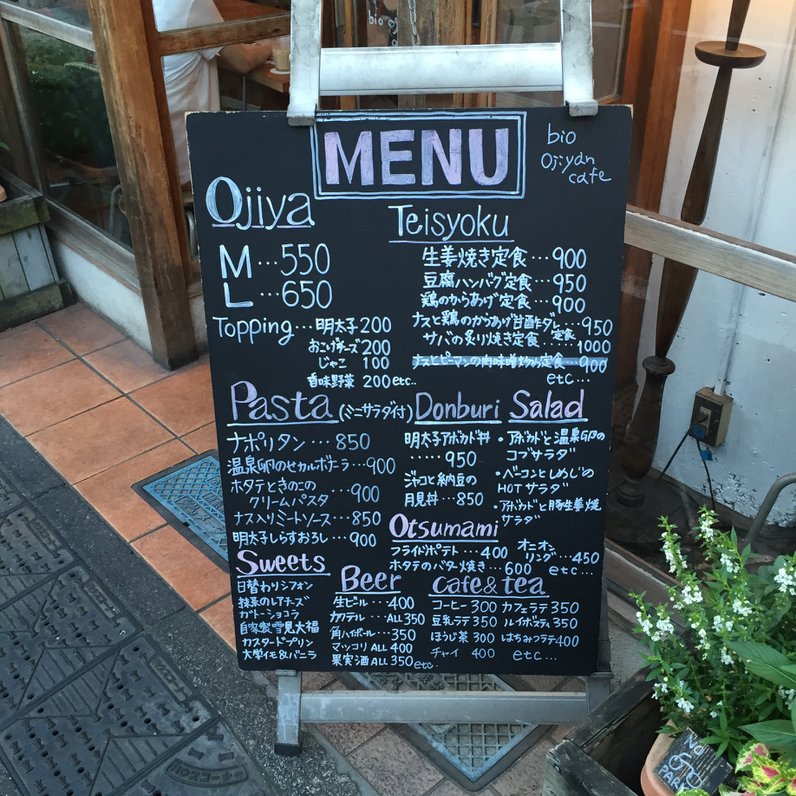 MENU
bio
Ojiyan
cafe
Ojiya
M…550
L…650
Topping…明太子200
おこげチーズ200
じゃこ 100
香味野菜 200 etc..
Teisyoku
生姜焼き定食…900
豆腐ハンバーグ定食…950
鶏のからあげ定食…900
ナスと鶏のからあげ甘酢ダレ定食…950
サバの炙り焼き定食…1000
ナスとピーマンの肉味噌炒め定食…900
etc…
Pasta(ミニサラダ付)
ナポリタン…850
温泉卵のせカルボナーラ…900
ホタテときのこの
クリームパスタ…900
ナス入りミートソース…850
明太子しらすおろし…900
Donburi
明太子アボカド丼
…..950
ジャコと納豆の
月見丼…850
Salad
・アボカドと温泉卵の
コブサラダ
・ベーコンとしめじの
HOTサラダ
・アボカドと豚生姜焼
サラダ
Otsumami
フライドポテト…400
オニオン
リング…450
ホタテのバター焼き…600
etc…
Sweets
日替わりシフォン
抹茶のレアチーズ
ガトーショコラ
自家製雪見大福
カスタードプリン
大学イモ&バニラ
Beer
生ビール…400
カクテル…ALL350
角ハイボール…350
マッコリ ALL400
果実酒ALL350 etc..
cafe&tea
コーヒー300 カフェラテ350
豆乳ラテ350 ルイボスラテ350
ほうじ茶300 はちみつラテ400
チャイ 400 etc…
No
PARK